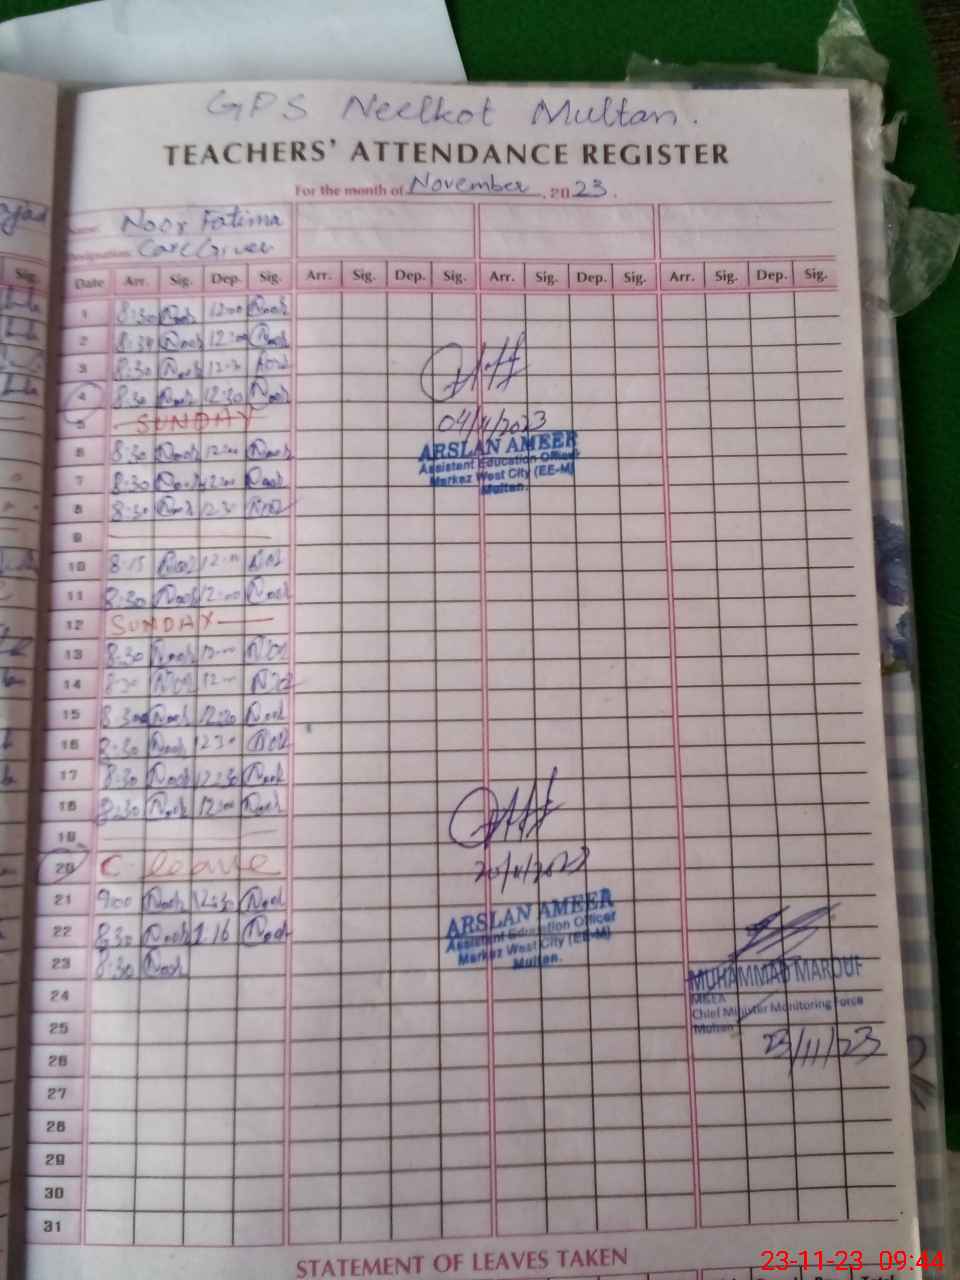 GPS Neelkot Multan.
TEACHERS' ATTENDANCE REGISTER
For the month of November, 2023.
Name: Noor Fatima
Designation: Care Giver
Sig. Date Arr. Sig. Dep. Sig. Arr. Sig. Dep. Sig. Arr. Sig. Dep. Sig. Arr. Sig. Dep. Sig.
1 8:30 Noor 12:00 Noor
2 Noor Noor
3 8:30 Noor Noor
4 8:30 Noor 12:30 Noor
5 SUNDAY
04/11/2023
ARSLAN AMEER
Assistant Education Officer
Markaz West City (EE-M)
Multan.
6 8:30 Noor 12:00 Noor
7 8:30 Noor 12:00 Noor
8 8:30 Noor Noor
9
10 8:15 Noor 12:00 Noor
11 8:30 Noor 12:00 Noor
12 SUNDAY
13 8:30 Noor 12:00 Noor
14 Noor Noor
15 8:30 Noor 12:30 Noor
16 8:30 Noor 12:30 Noor
17 8:30 Noor 12:30 Noor
18 8:30 Noor 12:00 Noor
19
20 C. leave
20/11/2023
21 9:00 Noor 12:30 Noor
22 8:30 Noor 1.16 Noor
ARSLAN AMEER
Assistant Education Officer
Markaz West City (EE-M)
Multan.
23 8:30 Noor
MUHAMMAD MAROUF
MEA
Chief Minister Monitoring Force
Multan
23/11/23
24
25
26
27
28
29
30
31
STATEMENT OF LEAVES TAKEN
23-11-23 09:44